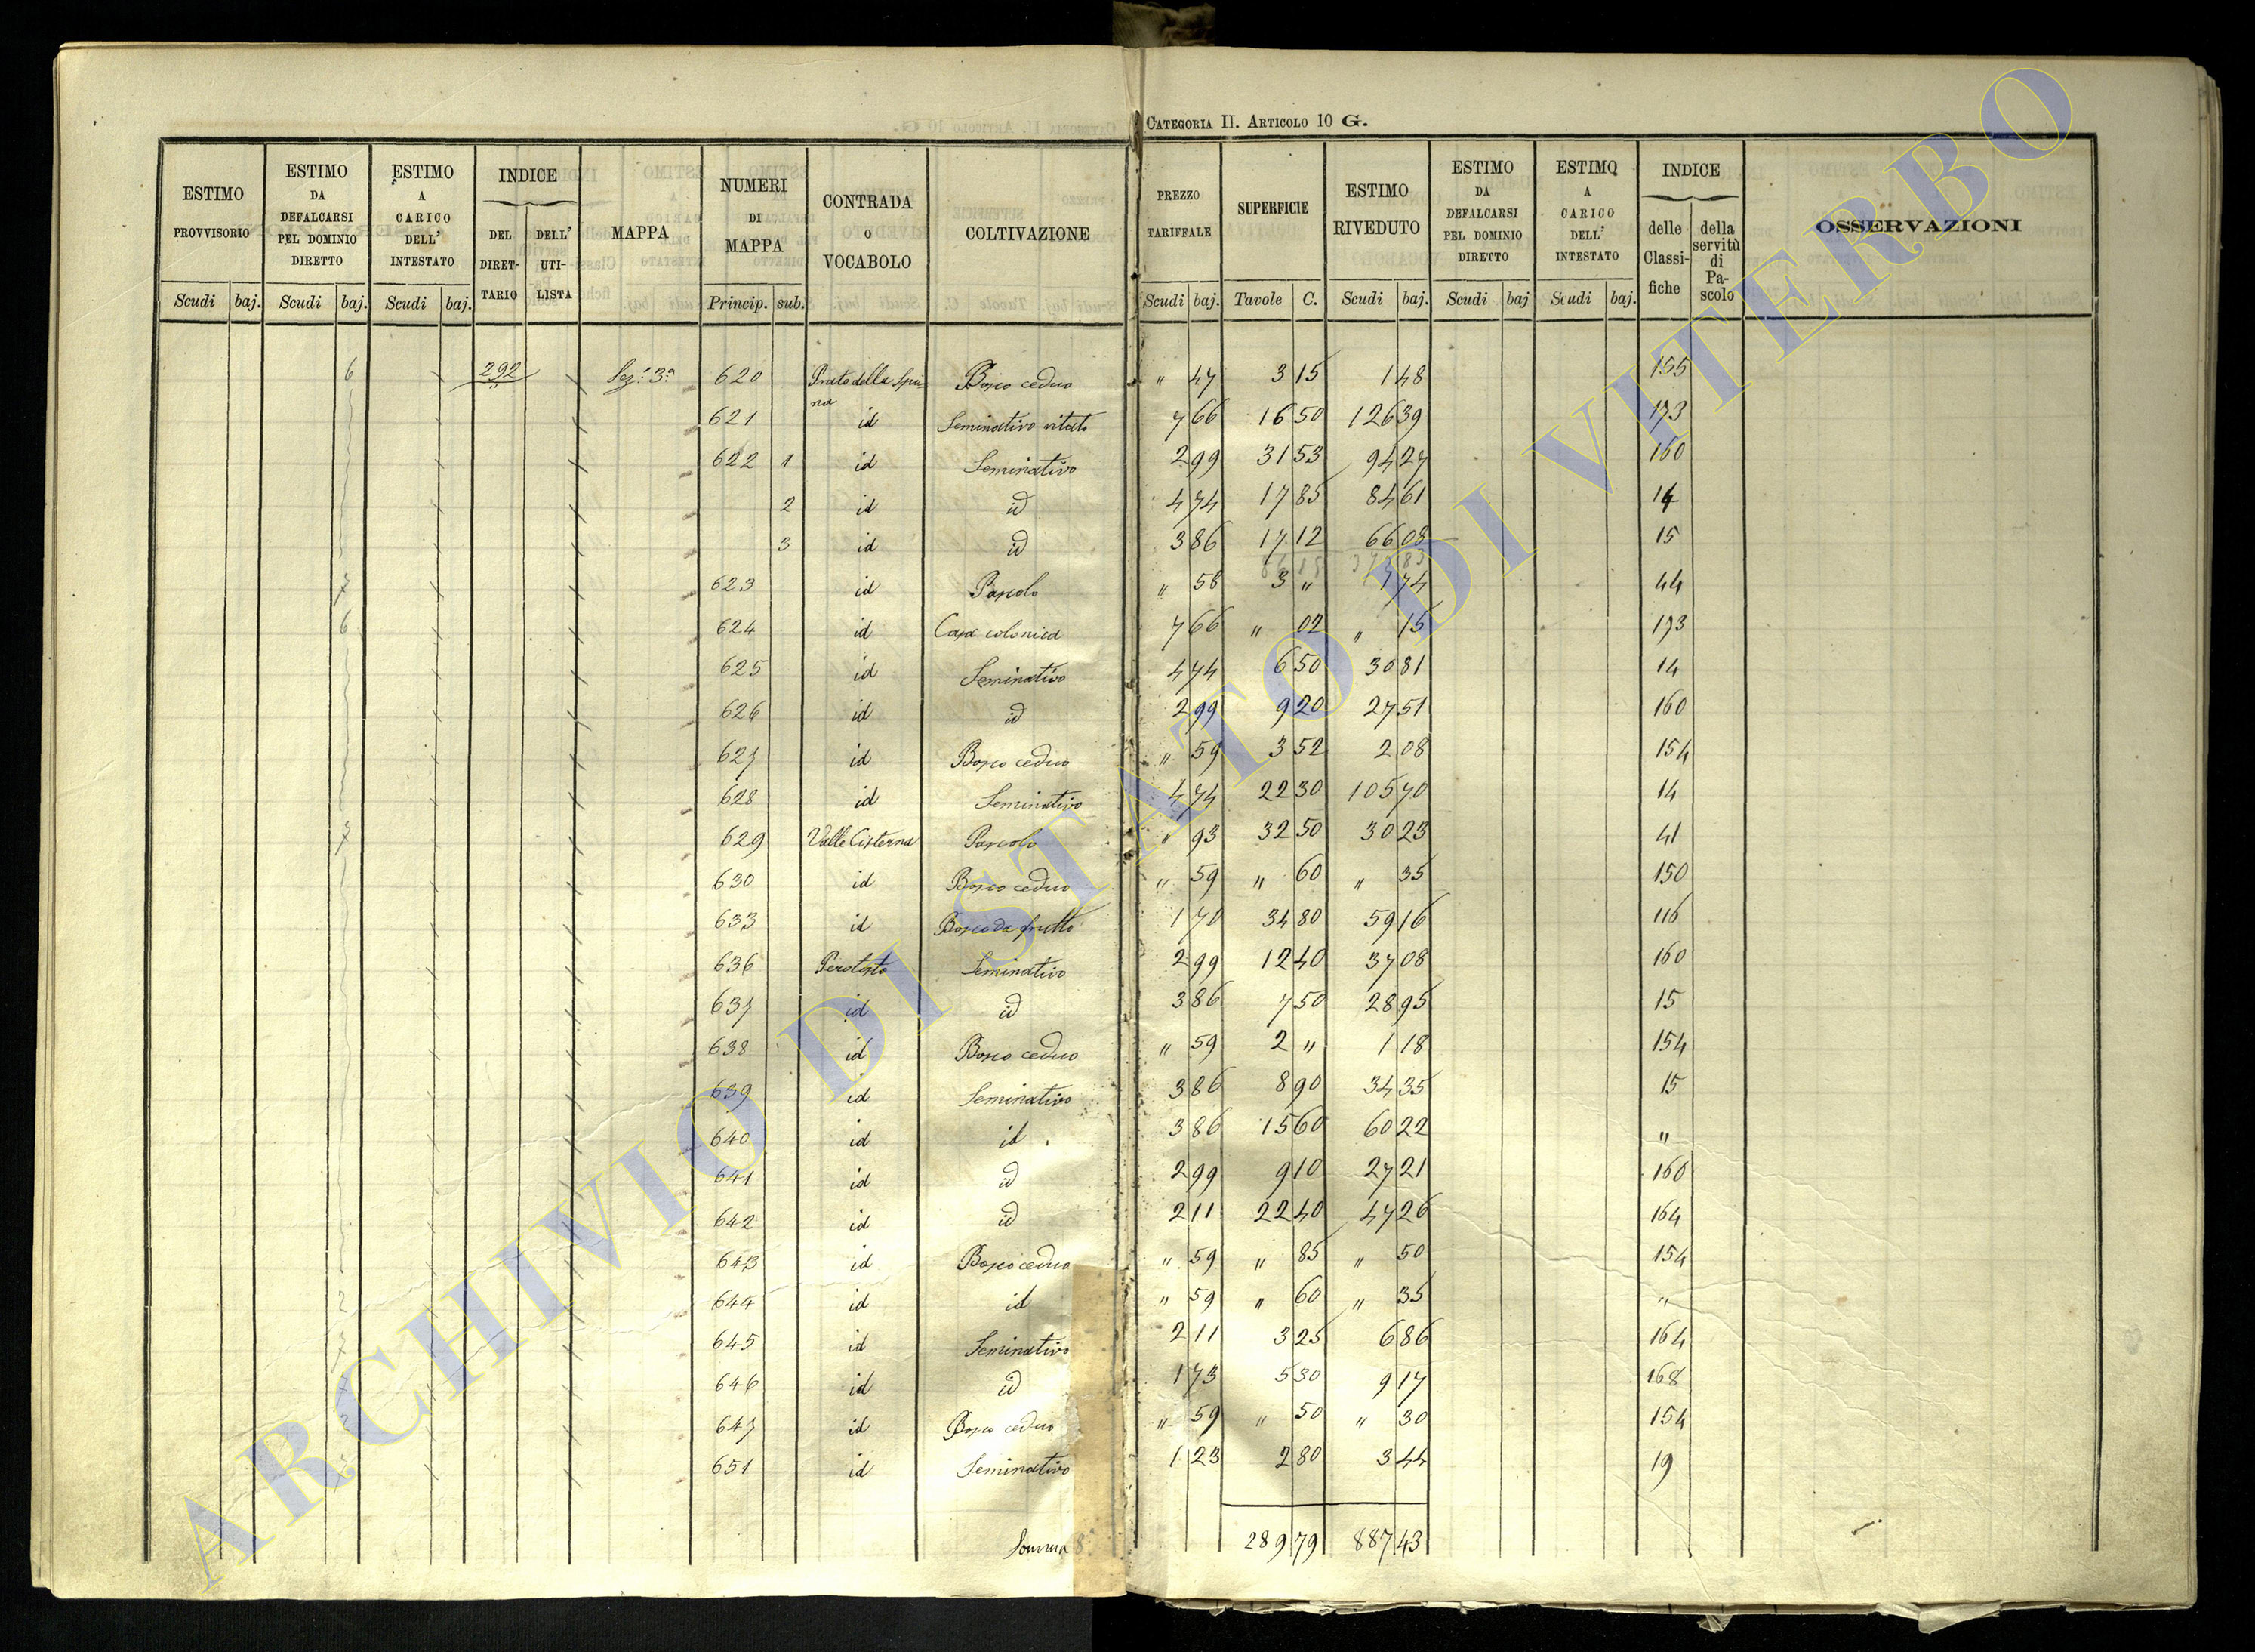 CATEGORIA II. ARTICOLO 10 G.
ESTIMO PROVVISORIO Scudi baj. ESTIMO DA DEFALCARSI PEL DOMINIO DIRETTO Scudi baj. ESTIMO A CARICO DELL' INTESTATO Scudi baj. INDICE DEL DIRET- TARIO DELL' UTI- LISTA MAPPA NUMERI DI MAPPA Princip. sub. CONTRADA O VOCABOLO COLTIVAZIONE PREZZO TARIFFALE Scudi baj. SUPERFICIE Tavole C. ESTIMO RIVEDUTO Scudi baj. ESTIMO DA DEFALCARSI PEL DOMINIO DIRETTO Scudi baj ESTIMO A CARICO DELL' INTESTATO Scudi baj. INDICE delle Classi- fiche della servitù di Pa- scolo OSSERVAZIONI
6 292 Sez. 3a 620 Prato della Spi- Bosco ceduo " 47 3 15 1 48 155
na
621 id Seminativo vitato 7 66 16 50 126 39 173
622 1 id Seminativo 2 99 31 53 94 27 160
2 id id 4 74 17 85 84 61 14
3 id id 3 86 17 12 66 08 15
7 623 id Pascolo " 58 3 " 1 74 44
6 624 id Casa colonica 7 66 " 02 " 15 173
625 id Seminativo 4 74 6 50 30 81 14
626 id id 2 99 9 20 27 51 160
627 id Bosco ceduo " 59 3 52 2 08 154
628 id Seminativo 4 74 22 30 105 70 14
7 629 Valle Cisterna Pascolo " 93 32 50 30 23 41
630 id Bosco ceduo " 59 " 60 " 35 150
633 id Bosco da frutto 1 70 34 80 59 16 116
636 Perotosto Seminativo 2 99 12 40 37 08 160
637 id id 3 86 7 50 28 95 15
638 id Bosco ceduo " 59 2 " 1 18 154
639 id Seminativo 3 86 8 90 34 35 15
640 id id 3 86 15 60 60 22 "
641 id id 2 99 9 10 27 21 160
642 id id 2 11 22 40 47 26 164
643 id Bosco ceduo " 59 " 85 " 50 154
2 644 id id " 59 " 60 " 35 "
7 645 id Seminativo 2 11 3 25 6 86 164
646 id id 1 73 5 30 9 17 168
2 647 id Bosco ceduo " 59 " 50 " 30 154
651 id Seminativo 1 23 2 80 3 44 19
Somma 289 79 887 43
ARCHIVIO DI STATO DI VITERBO